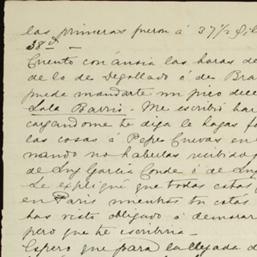 las primeras fueron á 37½ 
38 
Cuento con ánsia las horas de
de lo de Degollado ó de Bra
puede mandarte un pico dece
Lola Barrios. Me escribió har
cargandome te diga le hagas fa
las cosas á Pepe Cuevas en
mando no haberlas recibido
de Luz Garcia Conde ó de Luz
Le expliqué que todas estas
en Paris mientras tu estas
has visto obligado á demorar
pero que te escribiria.
Espero que para la llegada d